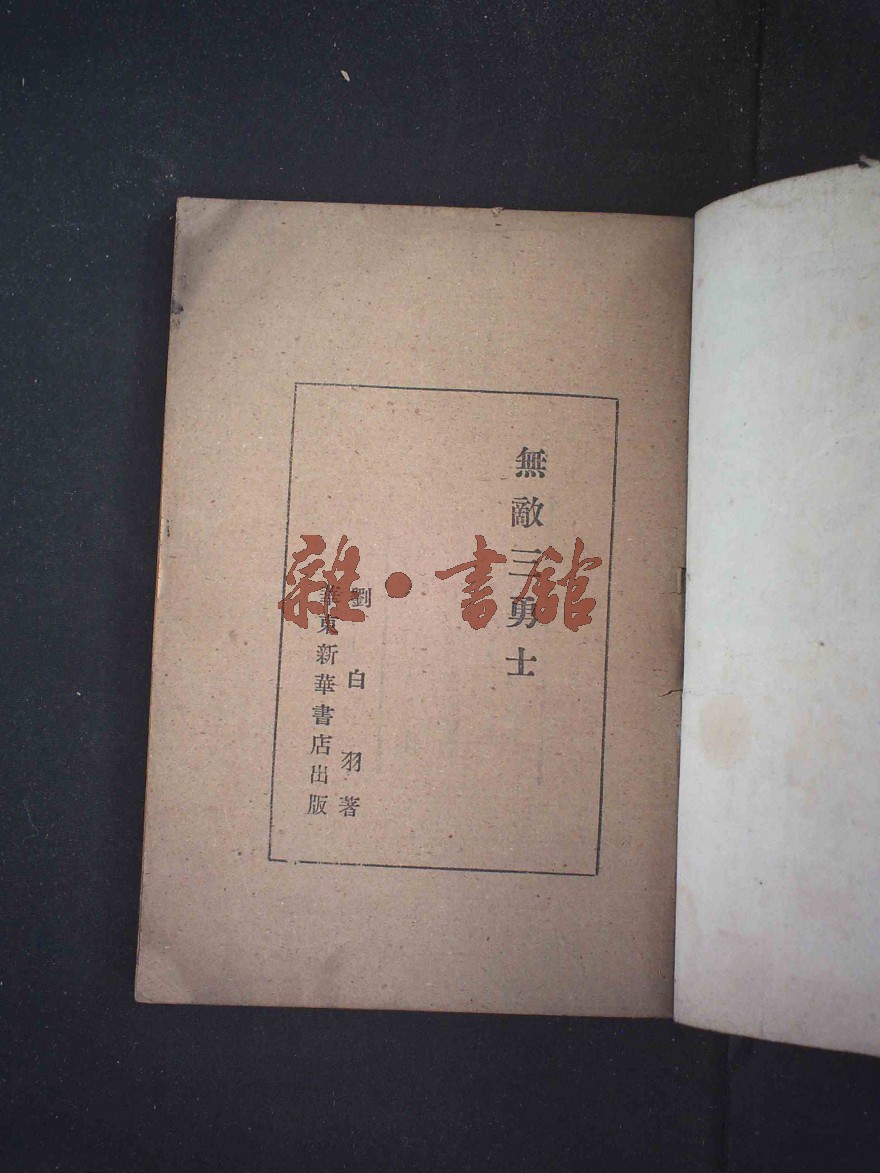 無敵三勇士
劉白羽著
華東新華書店出版
雜·書館